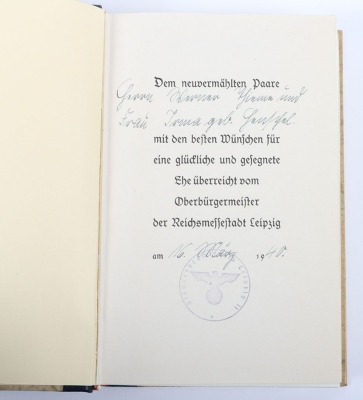 Dem neuvermählten Paare
Herrn Werner Thieme und
Frau Irma geb. Henschel
mit den besten Wünschen für
eine glückliche und gesegnete
Ehe überreicht vom
Oberbürgermeister
der Reichsmessestadt Leipzig
am 16. März 1940.